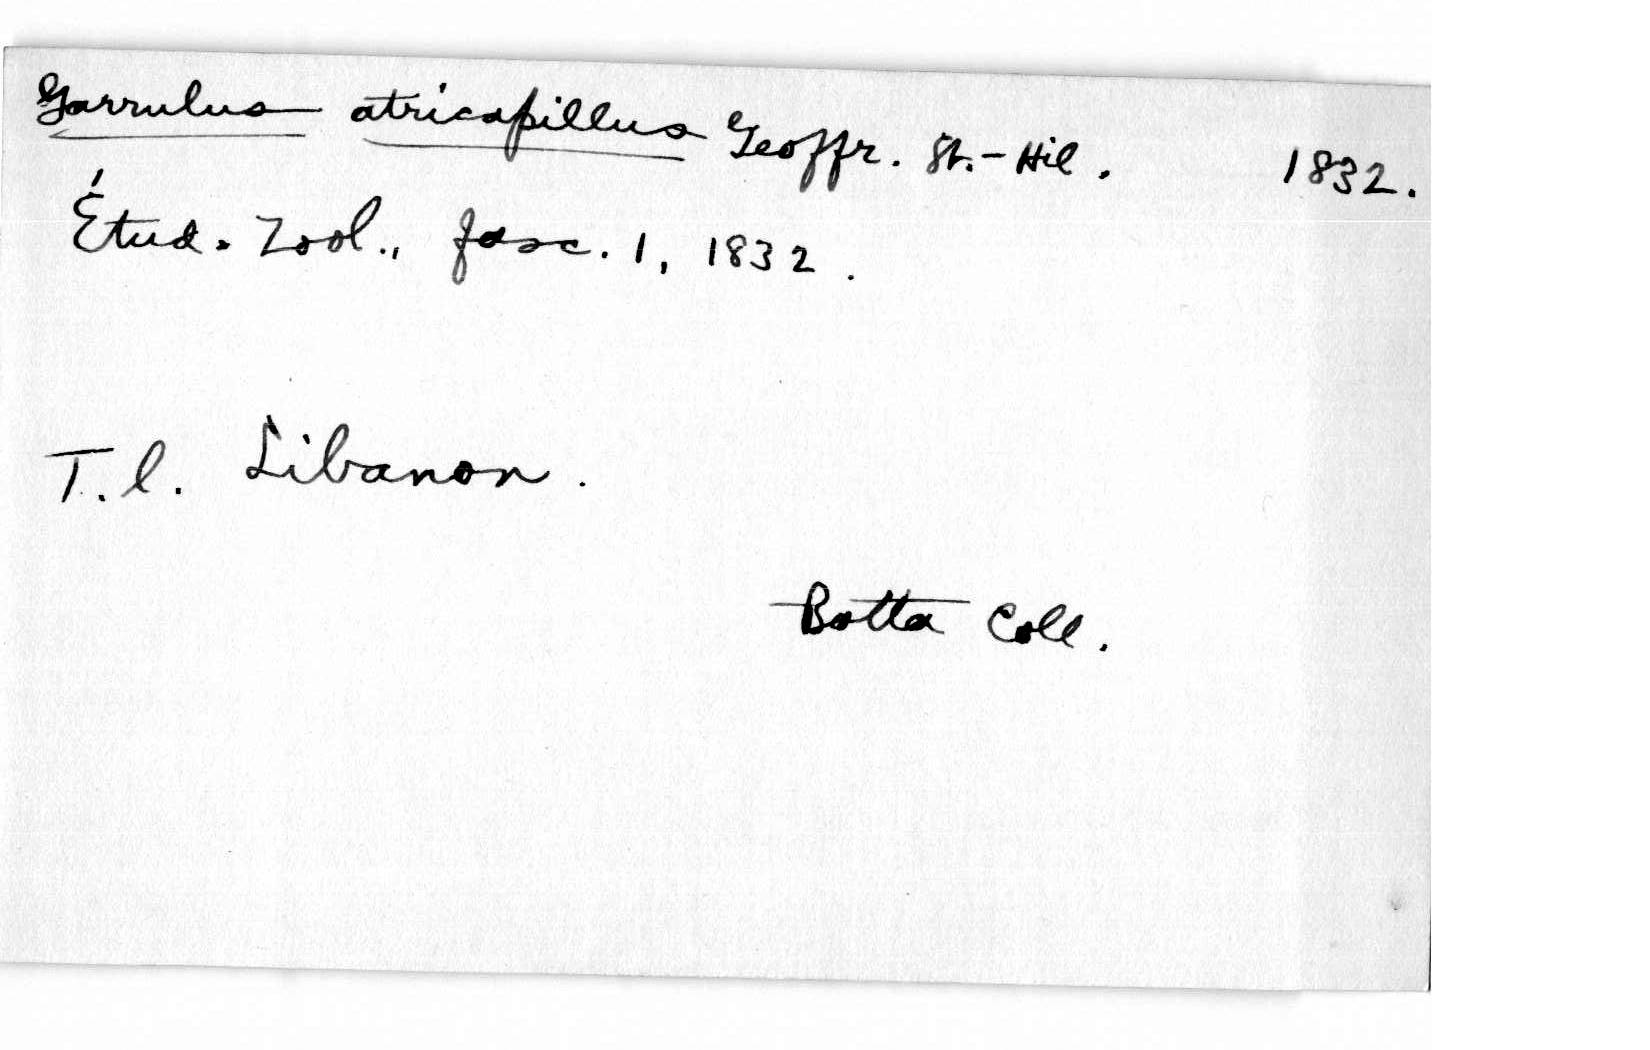 Garrulus atricapillus Geoffr. St.-Hil. 1832.
Étud. Zool., fasc. 1, 1832.
T.l. Libanon.
Botta Coll.